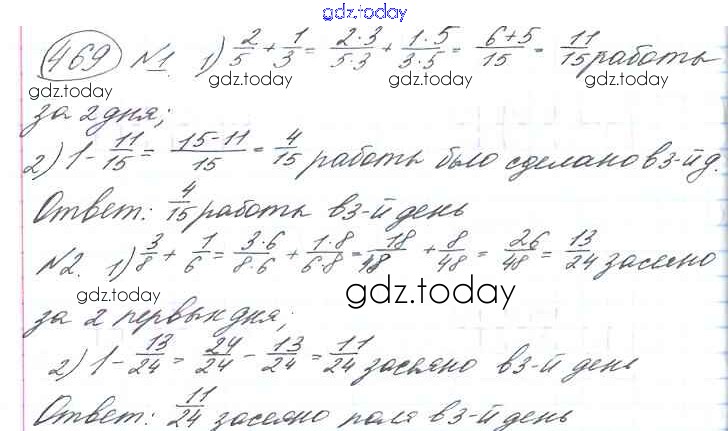 gdz.today
469 №1. 1) 2/5 + 1/3 = 2·3/5·3 + 1·5/3·5 = 6+5/15 = 11/15 работы
gdz.today gdz.today gdz.today gdz.today
за 2 дня;
2) 1 - 11/15 = 15-11/15 = 4/15 работы было сделано в 3-й д.
Ответ: 4/15 работы в 3-й день
№2. 1) 3/8 + 1/6 = 3·6/8·6 + 1·8/6·8 = 18/48 + 8/48 = 26/48 = 13/24 засеяно
gdz.today gdz.today gdz.today
за 2 первых дня;
2) 1 - 13/24 = 24/24 - 13/24 = 11/24 засеяно в 3-й день
Ответ: 11/24 засеяно поля в 3-й день